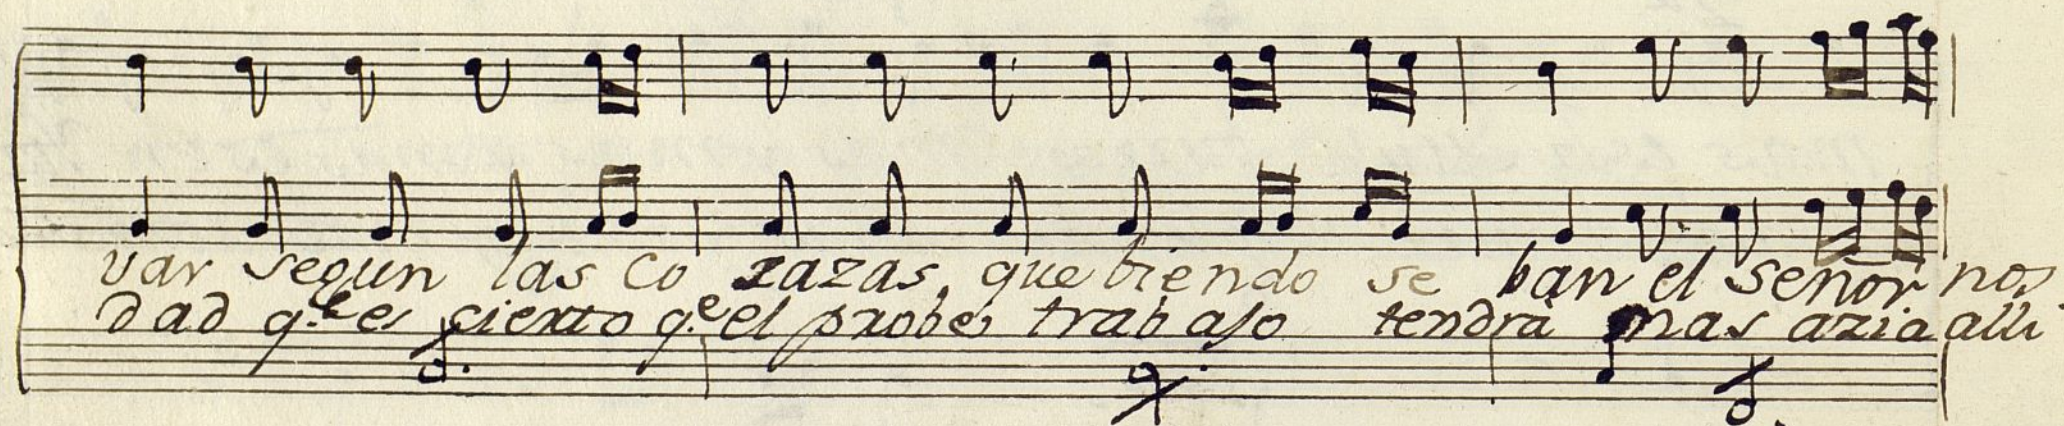 var segun las Co razas, que biendo se ban el Señor nos
dad q.e es cierto q.e el probe trabajo tendrà mas azia alli